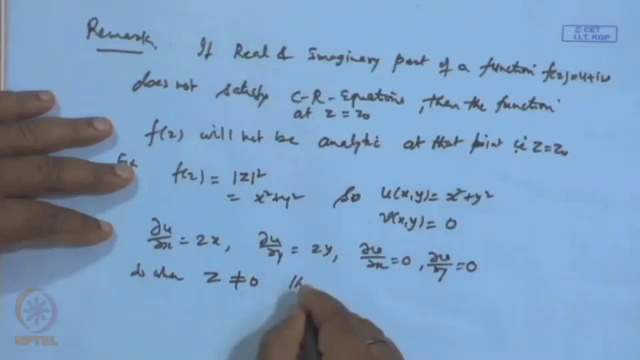 C CET
I.I.T. KGP
Remark. If Real & Imaginary part of a function f(z)=u+iv
does not satisfy C-R-Equations, then the function
at z=z₀
f(z) will not be analytic at that point i.e. z=z₀
f(z) = |z|²
= x²+y² So u(x,y) = x²+y²
v(x,y) = 0
∂u/∂x = 2x, ∂u/∂y = 2y, ∂v/∂x = 0, ∂v/∂y = 0
So when z ≠ 0
NPTEL